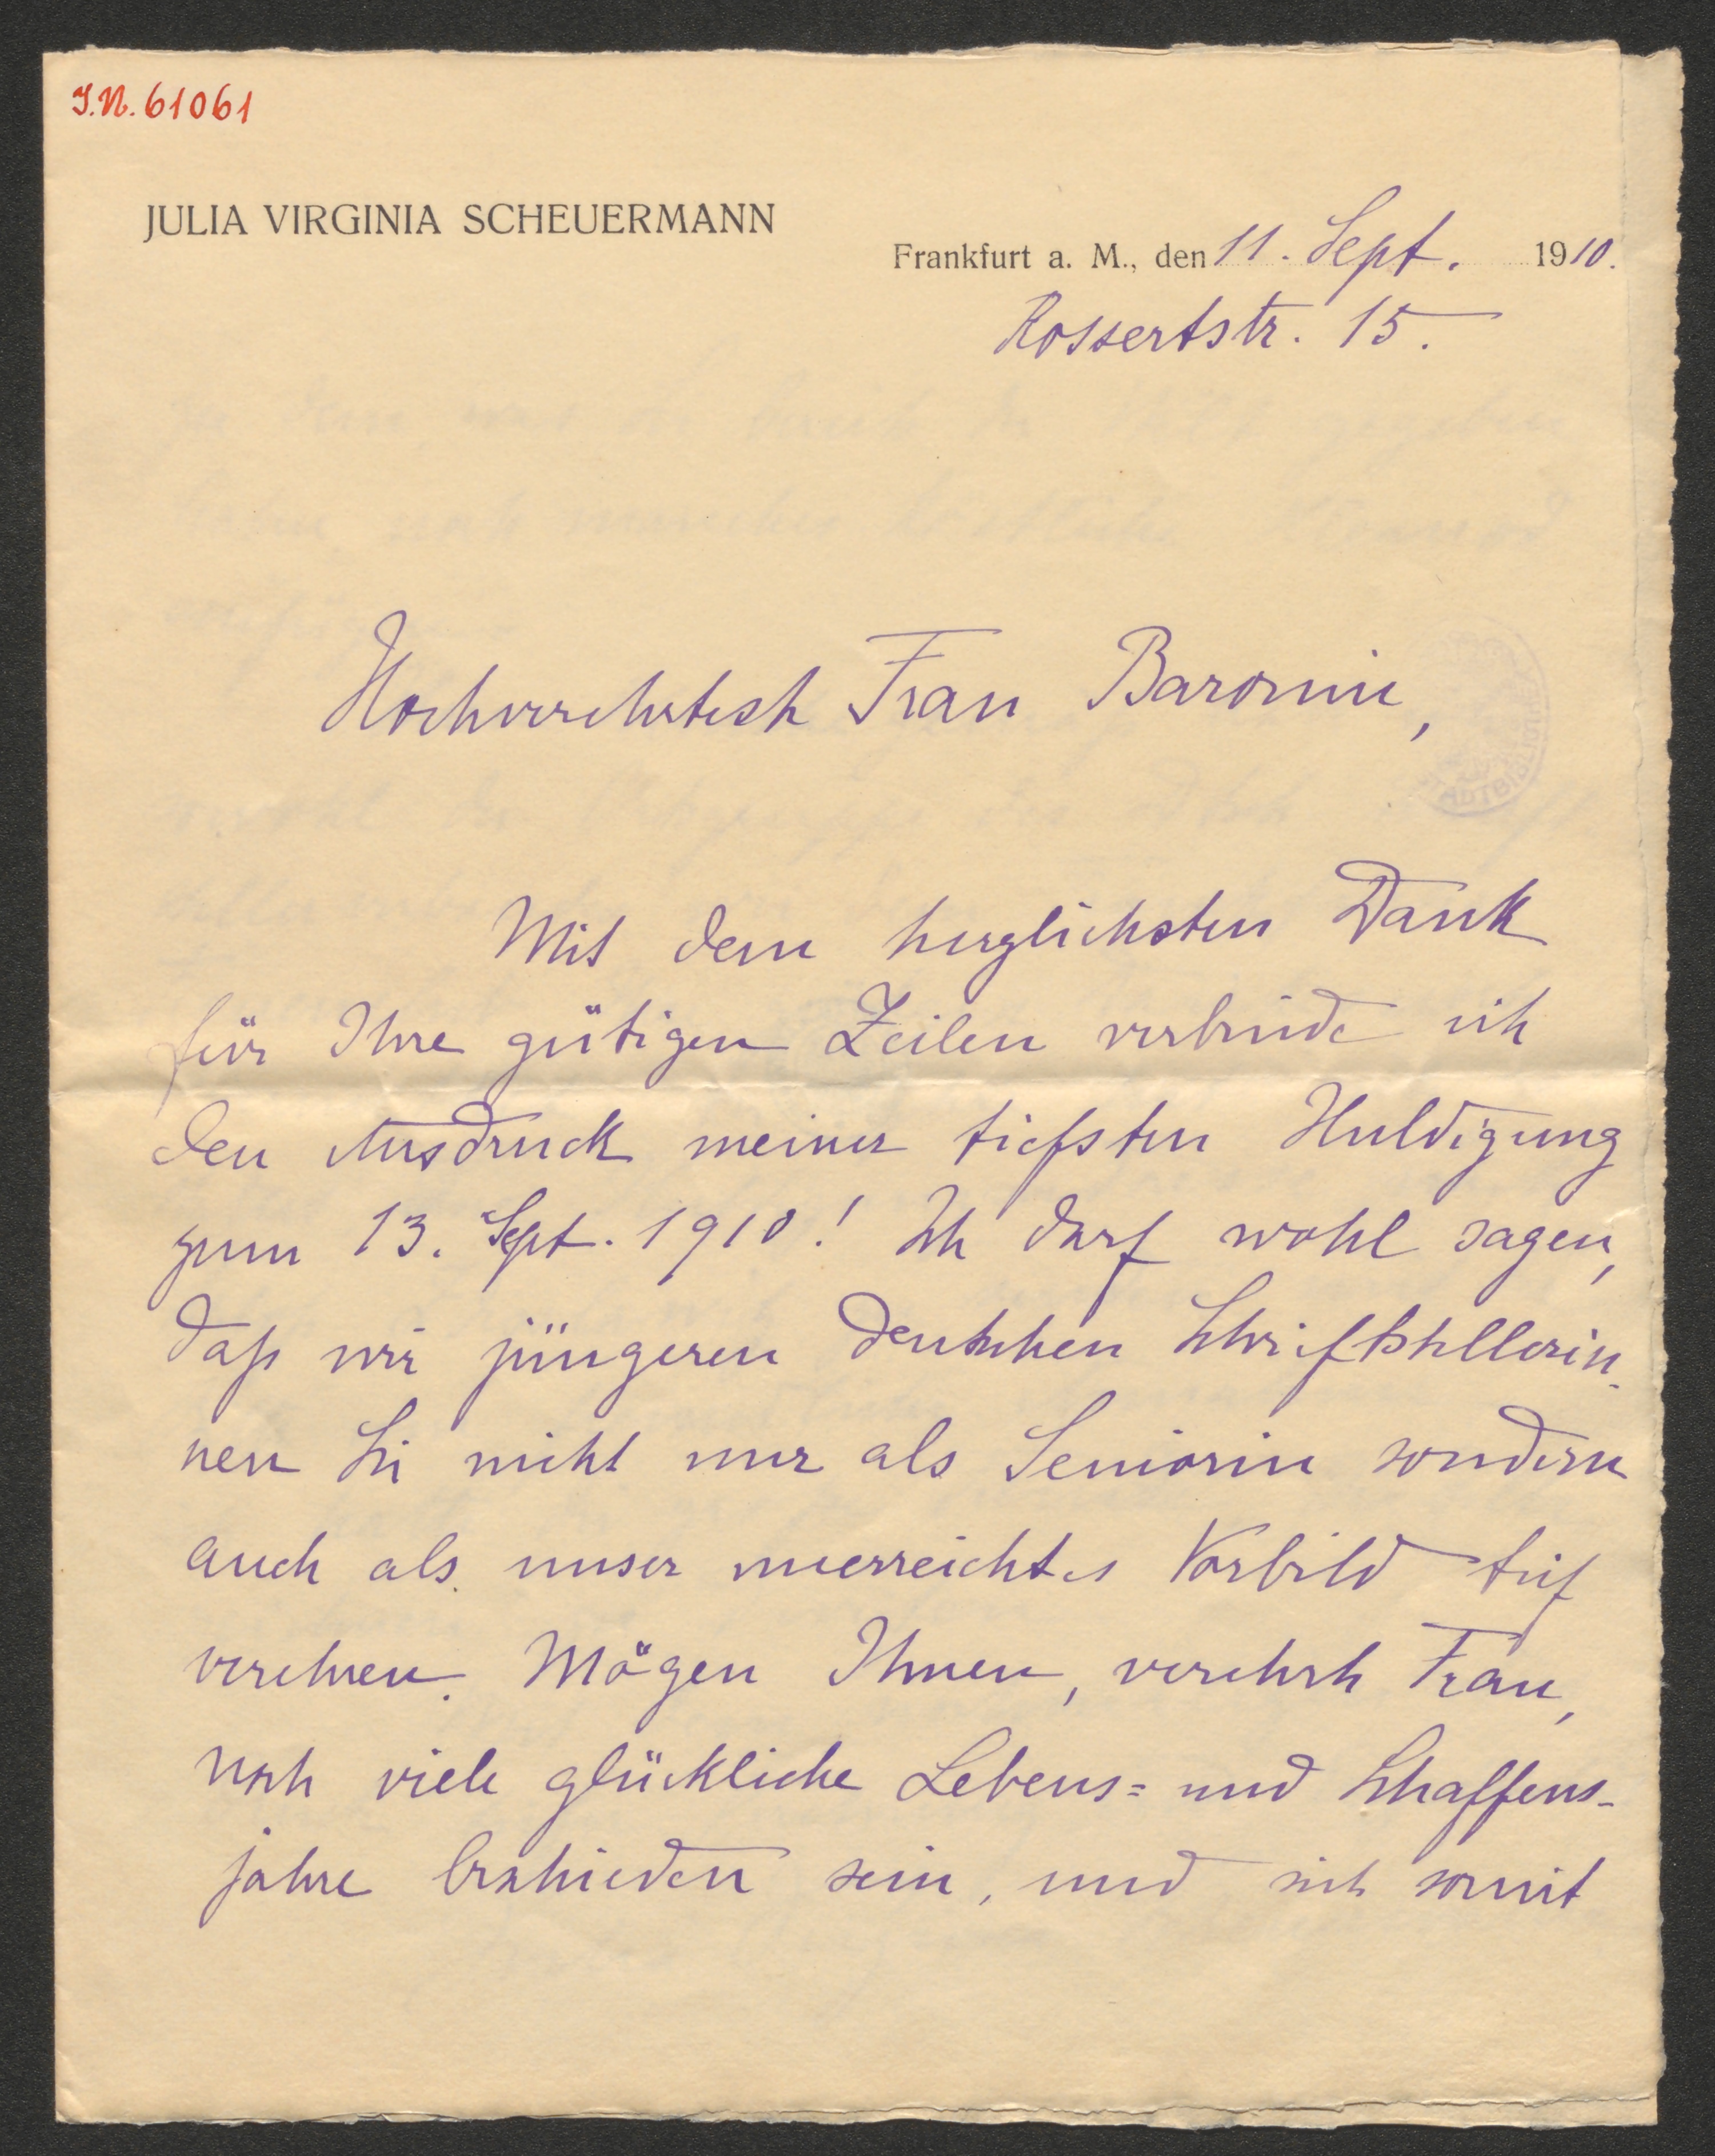 J.N. 61061
JULIA VIRGINIA SCHEUERMANN
Frankfurt a. M., den 11. Sept. 1910.
Rossertstr. 15.
Hochverehrteste Frau Baronin,
Mit dem herzlichsten Dank
für Ihre gütigen Zeilen verbinde ich
den Ausdruck meiner tiefsten Huldigung
zum 13. Sept. 1910! Ich darf wohl sagen,
daß wir jüngeren deutschen Schriftstellerin-
nen Sie nicht nur als Seniorin sondern
auch als unser unerreichtes Vorbild tief
verehren. Mögen Ihnen, verehrte Frau,
noch viele glückliche Lebens= und Schaffens-
jahre beschieden sein, und sich somit